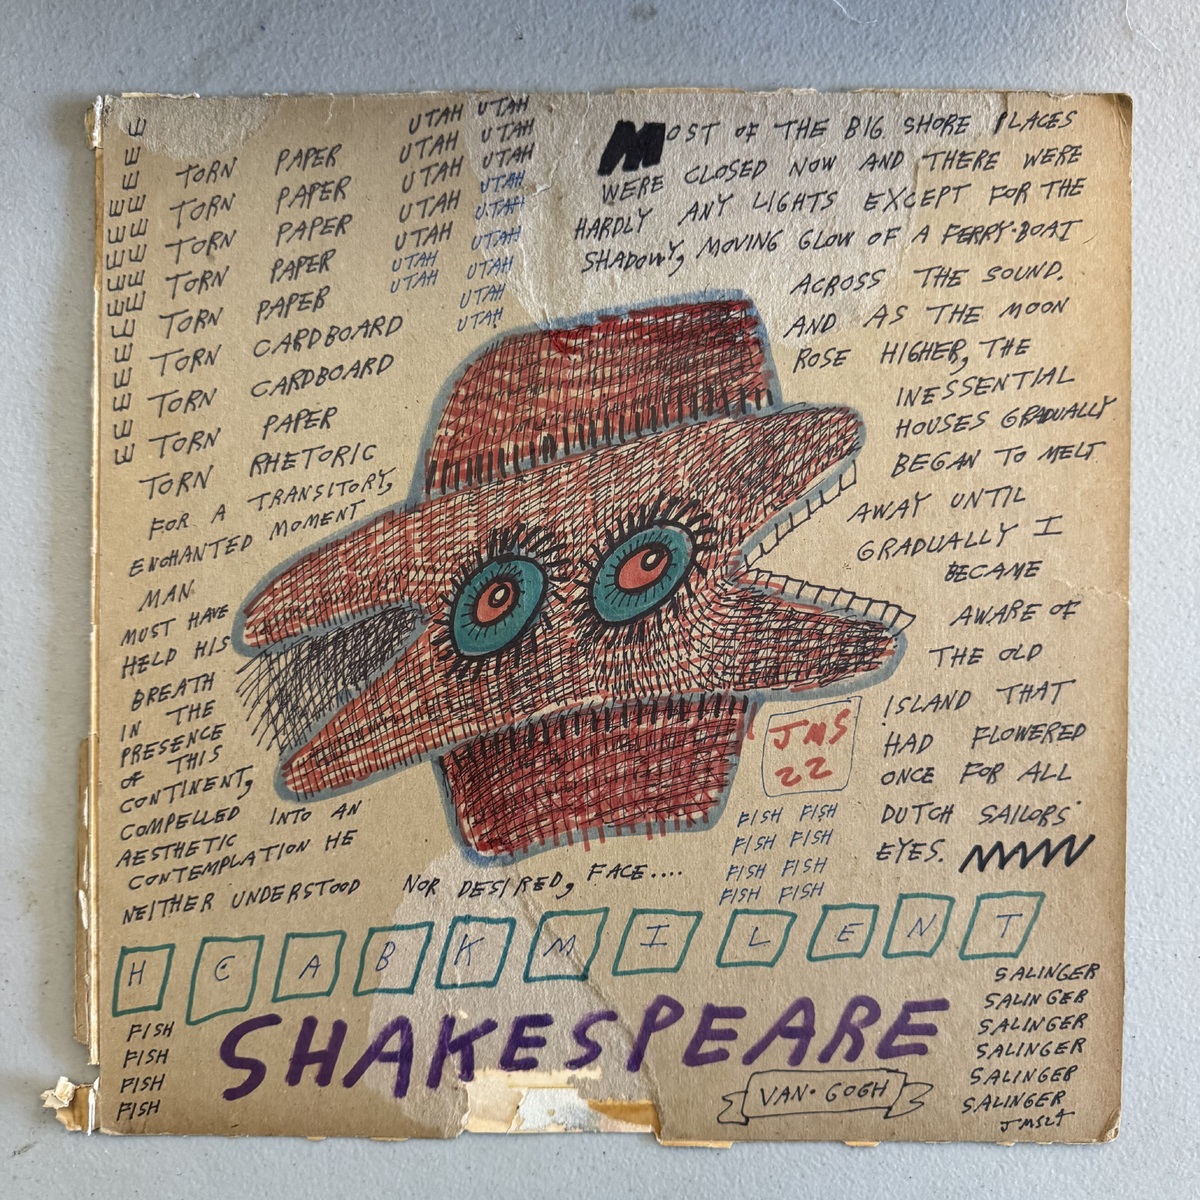 E
E
E
EE
EE
EE
EE
EE
E
E
E
E
E
E
TORN PAPER
TORN PAPER
TORN PAPER
TORN PAPER
TORN PAPER
TORN CARDBOARD
TORN CARDBOARD
TORN PAPER
TORN RHETORIC
FOR A TRANSITORY,
ENCHANTED MOMENT
MAN
MUST HAVE
HELD HIS
BREATH
IN THE
PRESENCE
OF THIS
CONTINENT,
COMPELLED INTO AN
AESTHETIC
CONTEMPLATION HE
NEITHER UNDERSTOOD NOR DESIRED, FACE....
UTAH UTAH
UTAH UTAH
UTAH UTAH
UTAH UTAH
UTAH UTAH
UTAH UTAH
UTAH UTAH
UTAH
UTAH
MOST OF THE BIG SHORE PLACES
WERE CLOSED NOW AND THERE WERE
HARDLY ANY LIGHTS EXCEPT FOR THE
SHADOWY, MOVING GLOW OF A FERRY-BOAT
ACROSS THE SOUND.
AND AS THE MOON
ROSE HIGHER, THE
INESSENTIAL
HOUSES GRADUALLY
BEGAN TO MELT
AWAY UNTIL
GRADUALLY I
BECAME
AWARE OF
THE OLD
ISLAND THAT
HAD FLOWERED
ONCE FOR ALL
DUTCH SAILORS'
EYES.
JMS
22
FISH FISH
FISH FISH
FISH FISH
FISH FISH
H C A B K M I L E N T
FISH
FISH
FISH
FISH
SHAKESPEARE
VAN·GOGH
SALINGER
SALINGER
SALINGER
SALINGER
SALINGER
SALINGER